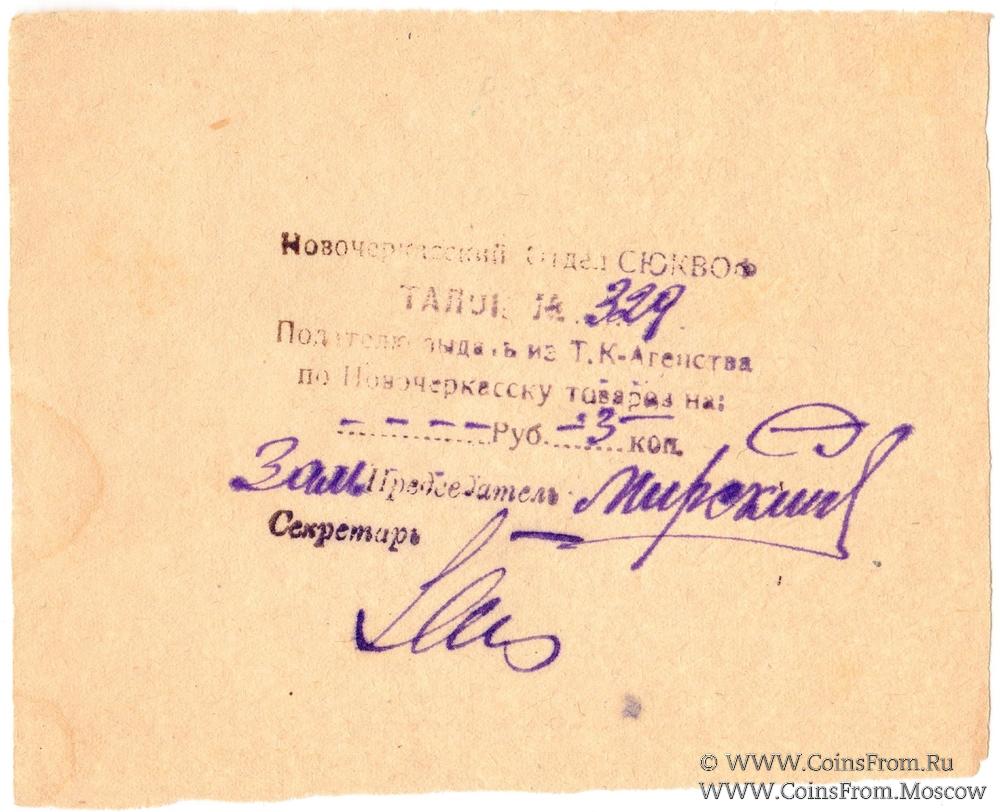 Новочеркасский отдел СЮКВОФ
ТАЛОН № 329.
Подателю выдать из Т.К-Агенства
по Новочеркасску товаров на:
– – – – Руб. –3– коп.
Зам Председатель Мирский
Секретарь
© WWW.CoinsFrom.Ru
WWW.CoinsFrom.Moscow